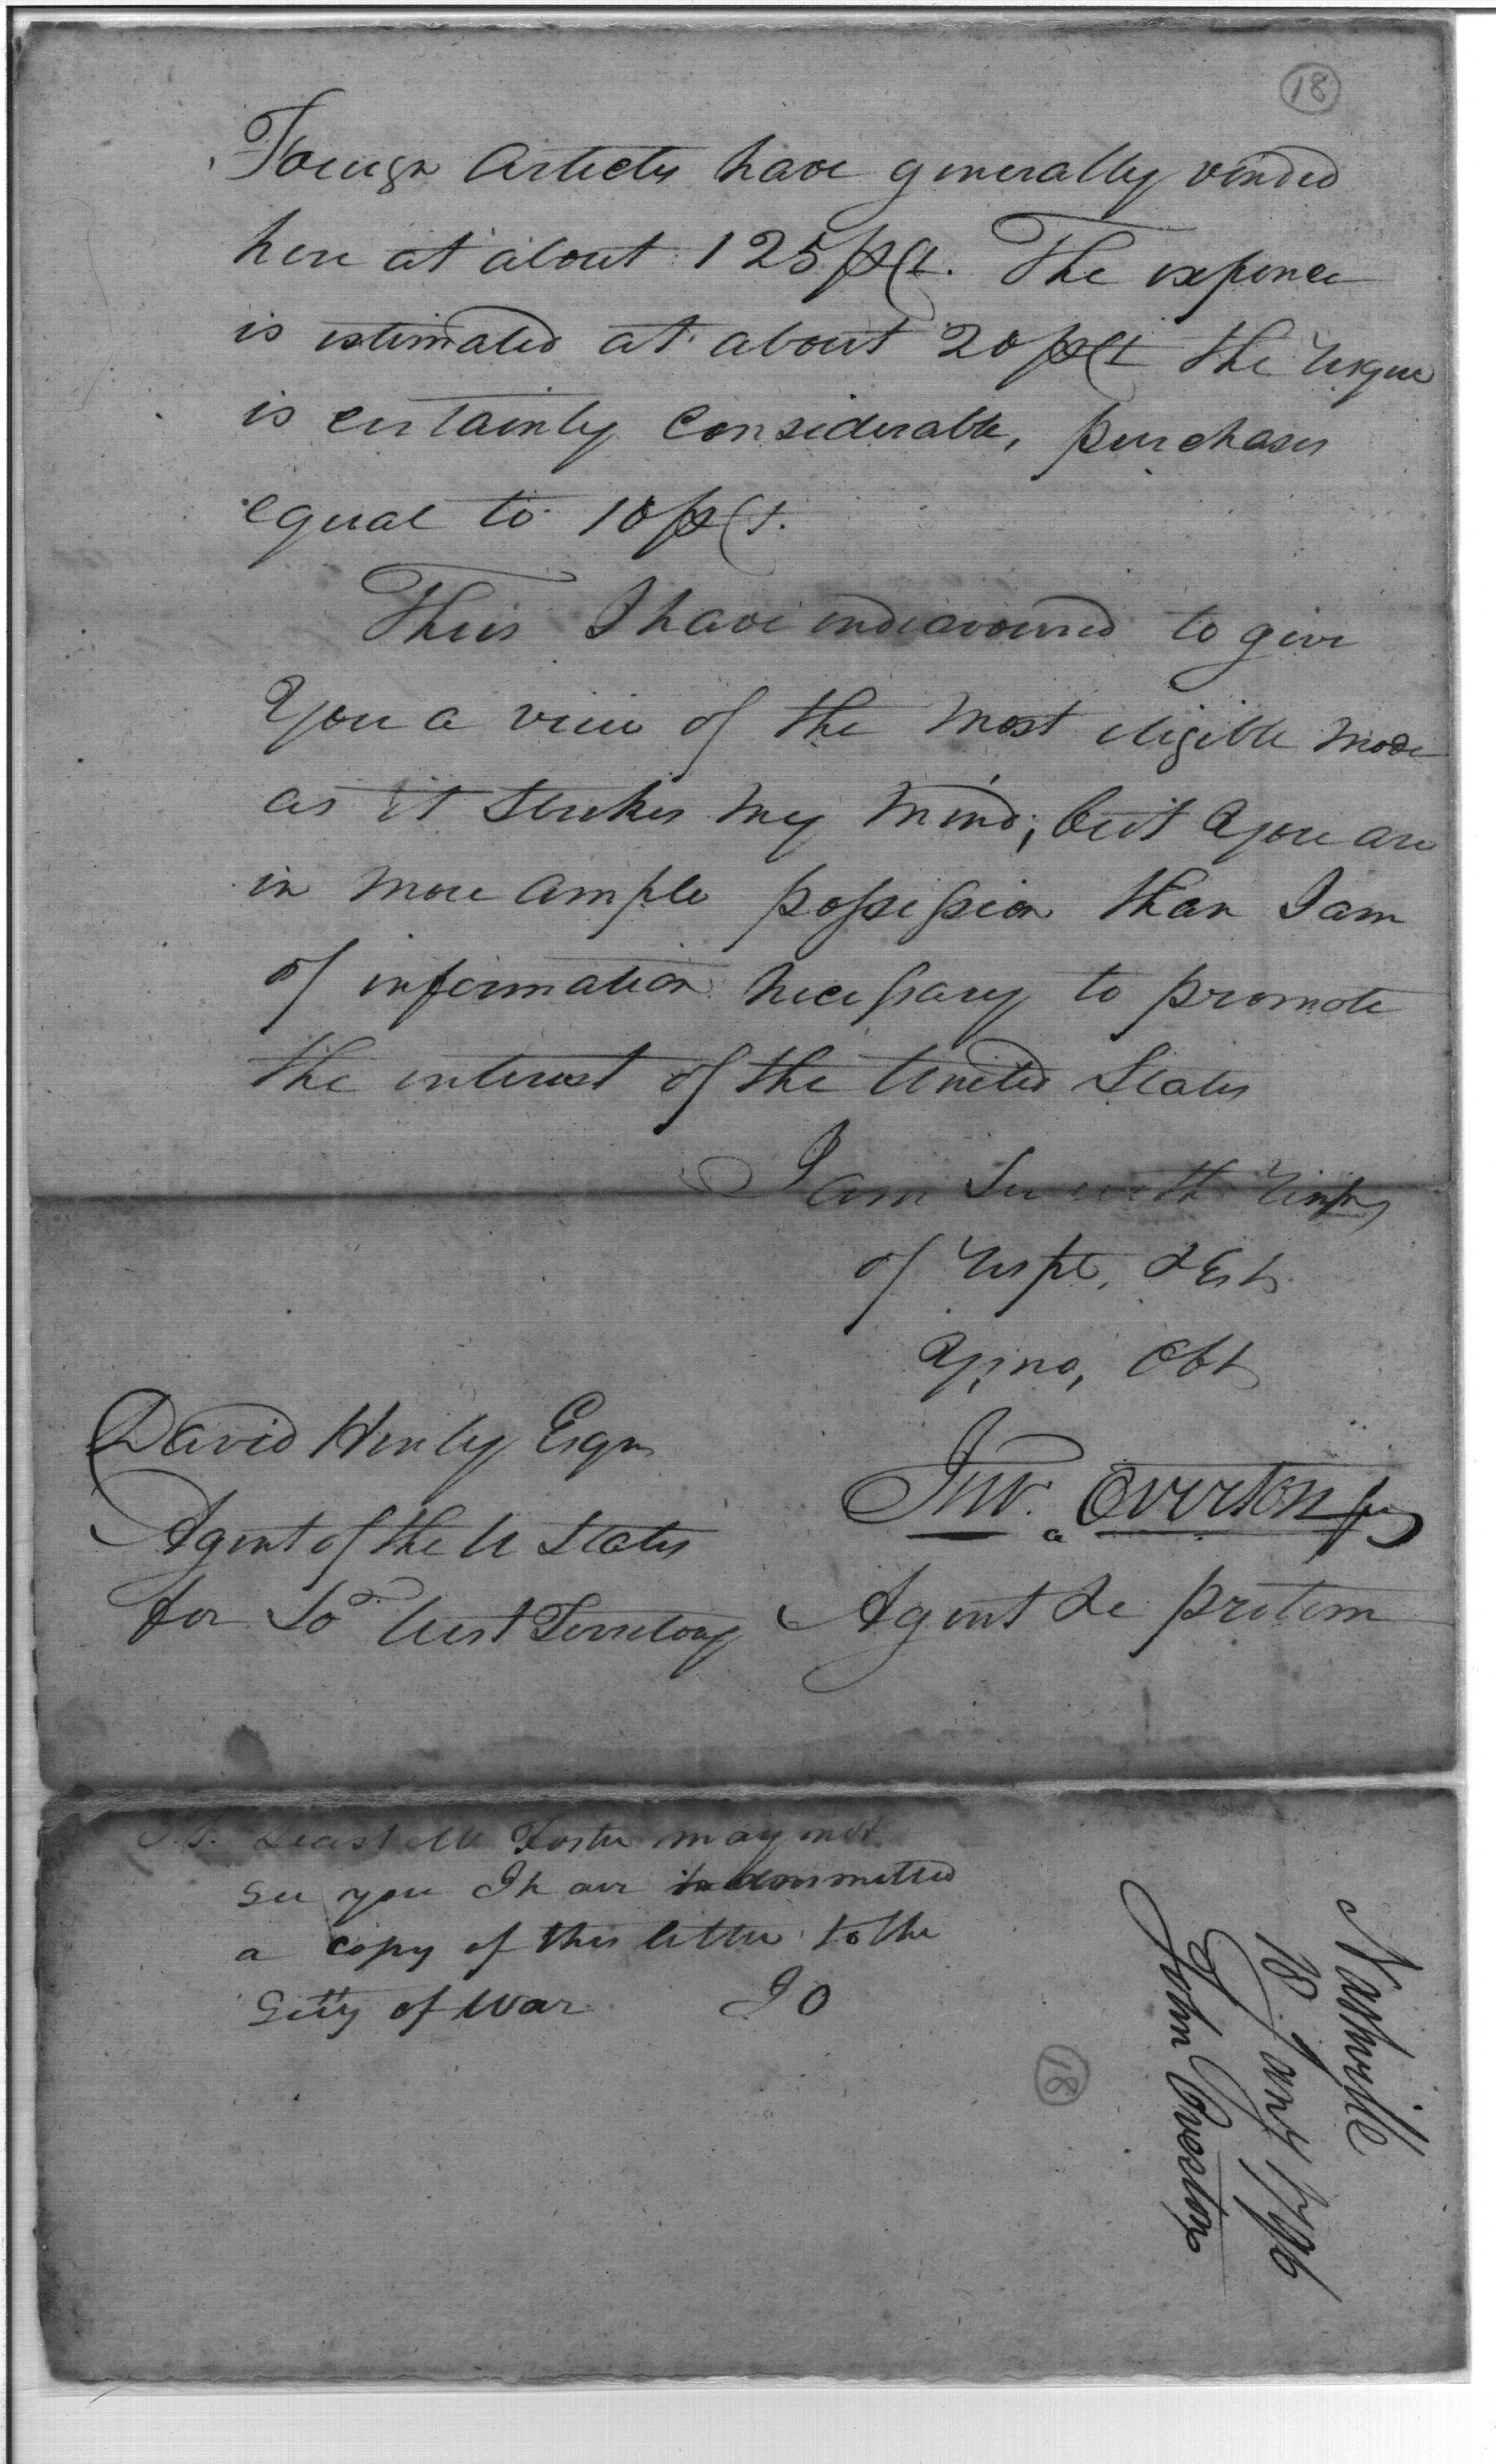 18
Foreign Articles have generally vended
here at about 125 pCt. The expence
is estimated at about 20 pCt the risque
is certainly considerable, purchases
equal to 10 pCt.
Thus I have endeavoured to give
you a view of the most eligible mode
as it strikes my mind; but you are
in more ample possession than I am
of information necessary to promote
the interest of the United States
I am Sir with
of respt, &
Obt
David Henly Esqr
Agent of the U States
for So West Territory
Jno. Overton
Agent &c protem
P.S. Least Mr Foster may not
see you I have transmitted
a copy of this letter to the
Setty of War JO
Nashville
10 Jany 1796
John Overton
18